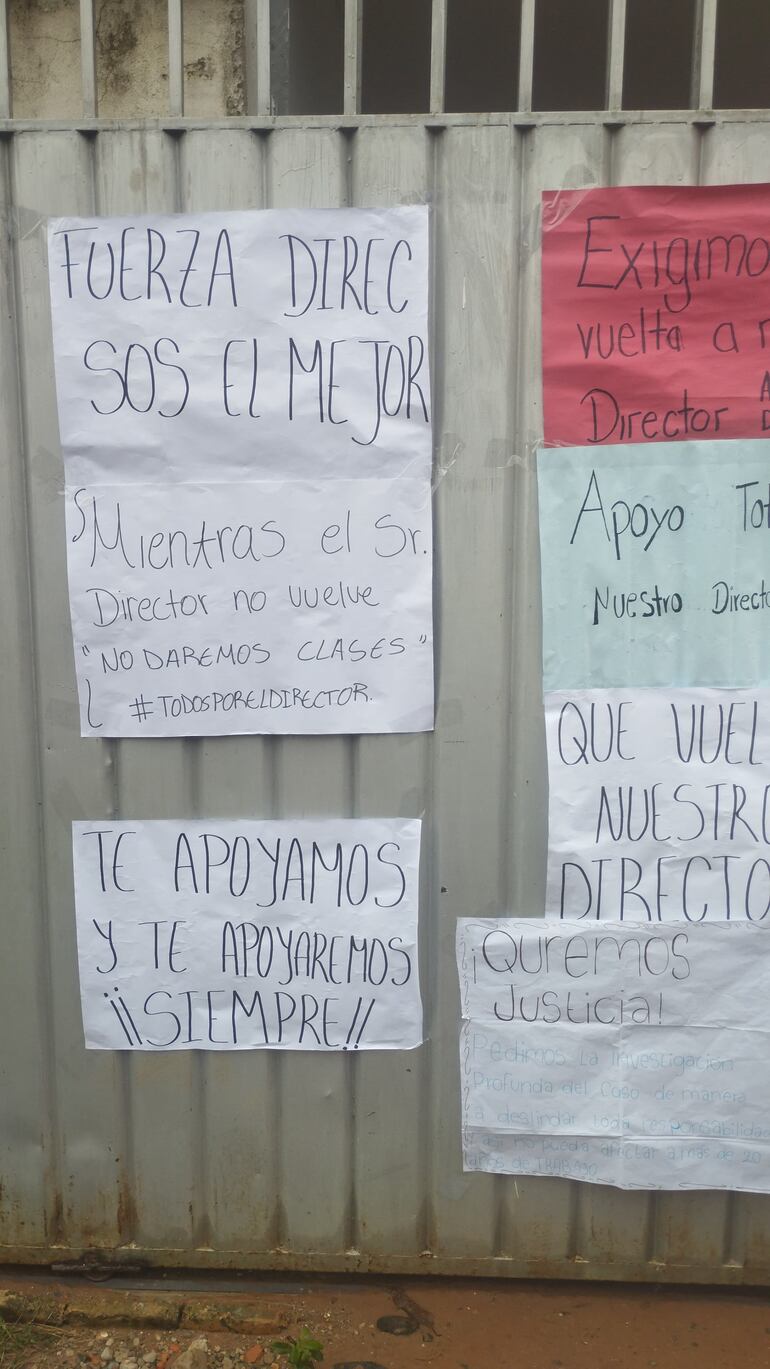 FUERZA DIREC
SOS EL MEJOR
Mientras el Sr.
Director no vuelve
"NO DAREMOS CLASES"
#TODOSPORELDIRECTOR.
TE APOYAMOS
Y TE APOYAREMOS
¡¡SIEMPRE!!
Exigimo
vuelta a
Director
Apoyo Tot
Nuestro Direct
QUE VUEL
NUESTRO
DIRECTO
¡Quremos
Justicia!
Pedimos La Investigación
Profunda del Caso de manera
a deslindar toda responsabilidad
y así no pueda afectar a mas de 20
años de TRABAJO